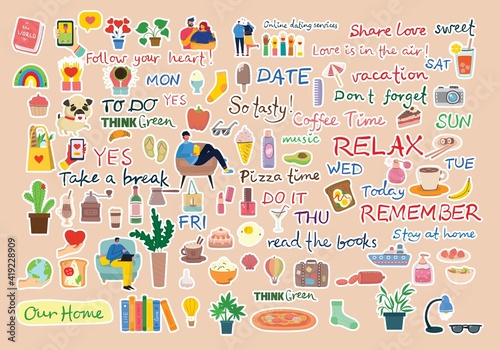 the WORLD
Online dating services
Share love
sweet
Follow your heart!
Love is in the air!
SAT
MON
DATE
vacation
TO DO
YES
So tasty!
Don't forget
THINK Green
Coffee Time
SUN
YES
music
RELAX
Take a break
Pizza time
WED
TUE
DO IT
Today
FRI
THU
REMEMBER
read the books
Stay at home
THINK Green
Our Home
Adobe Stock | #419228909